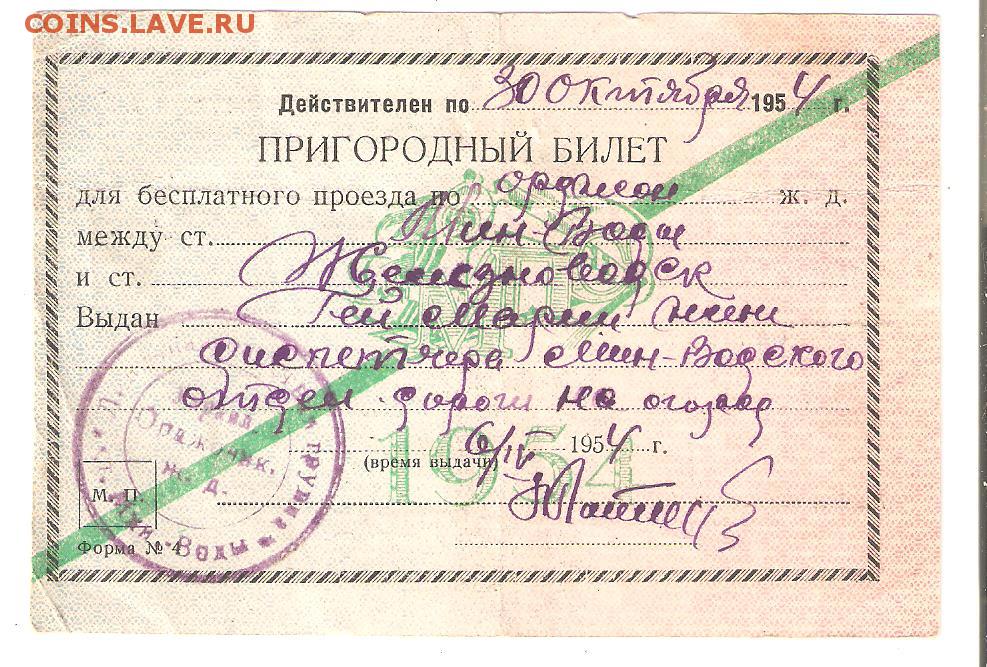 COINS.LAVE.RU
Действителен по 30 октября 1954 г.
ПРИГОРОДНЫЙ БИЛЕТ
для бесплатного проезда по орджон ж. д.
между ст. Мин-Воды
и ст. Железноводск
Выдан Гей Марии жены
диспетчера Мин-Водского
отдел. дороги на огород
6/IV 1954 г.
(время выдачи)
1954
М. П.
Форма № 4
Мин-Воды